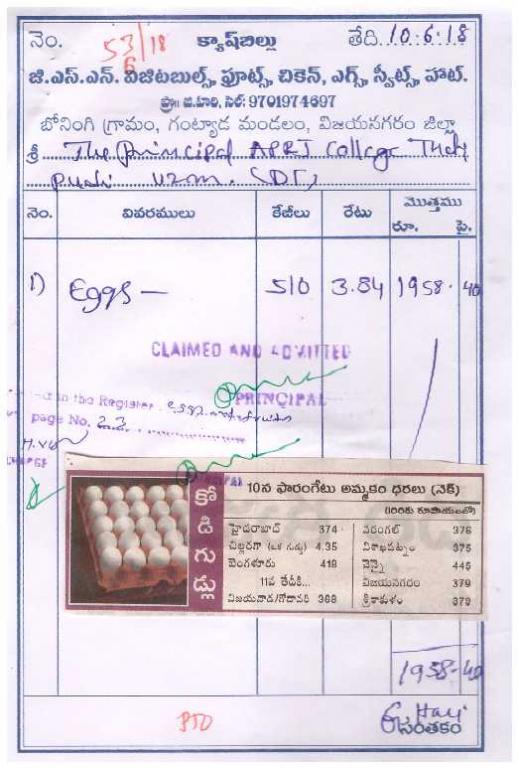 నెం. 53/18 క్యాష్‌బిల్లు తేది. 10.6.18
6
జి.ఎస్.ఎన్. విజిటబుల్స్, ఫ్రూట్స్, చికెన్, ఎగ్స్, స్వీట్స్, హాట్.
ప్రొ॥ జి.హరి, సెల్: 9701974697
బోనింగి గ్రామం, గంట్యాడ మండలం, విజయనగరం జిల్లా
శ్రీ The Principal APRJ College That
pudi vzm. (DT)
నెం. వివరములు కేజీలు రేటు మొత్తము
రూ. పై.
1) Eggs — 510 3.84 1958. 40
CLAIMED AND ADMITTED
PRINCIPAL
in the Register
page No. 22
కోడిగుడ్లు
10న ఫారంగేటు అమ్మకం ధరలు (నెక్)
(100కు రూపాయలలో)
హైదరాబాద్ 374 వరంగల్ 376
చిల్లరగా (ఒక గుడ్డు) 4.35 విశాఖపట్నం 375
బెంగళూరు 418 చెన్నై 445
11వ తేదీకి... విజయనగరం 379
విజయవాడ/గోదావరి 368 శ్రీకాకుళం 379
1958-40
PTO G Hari
సంతకం